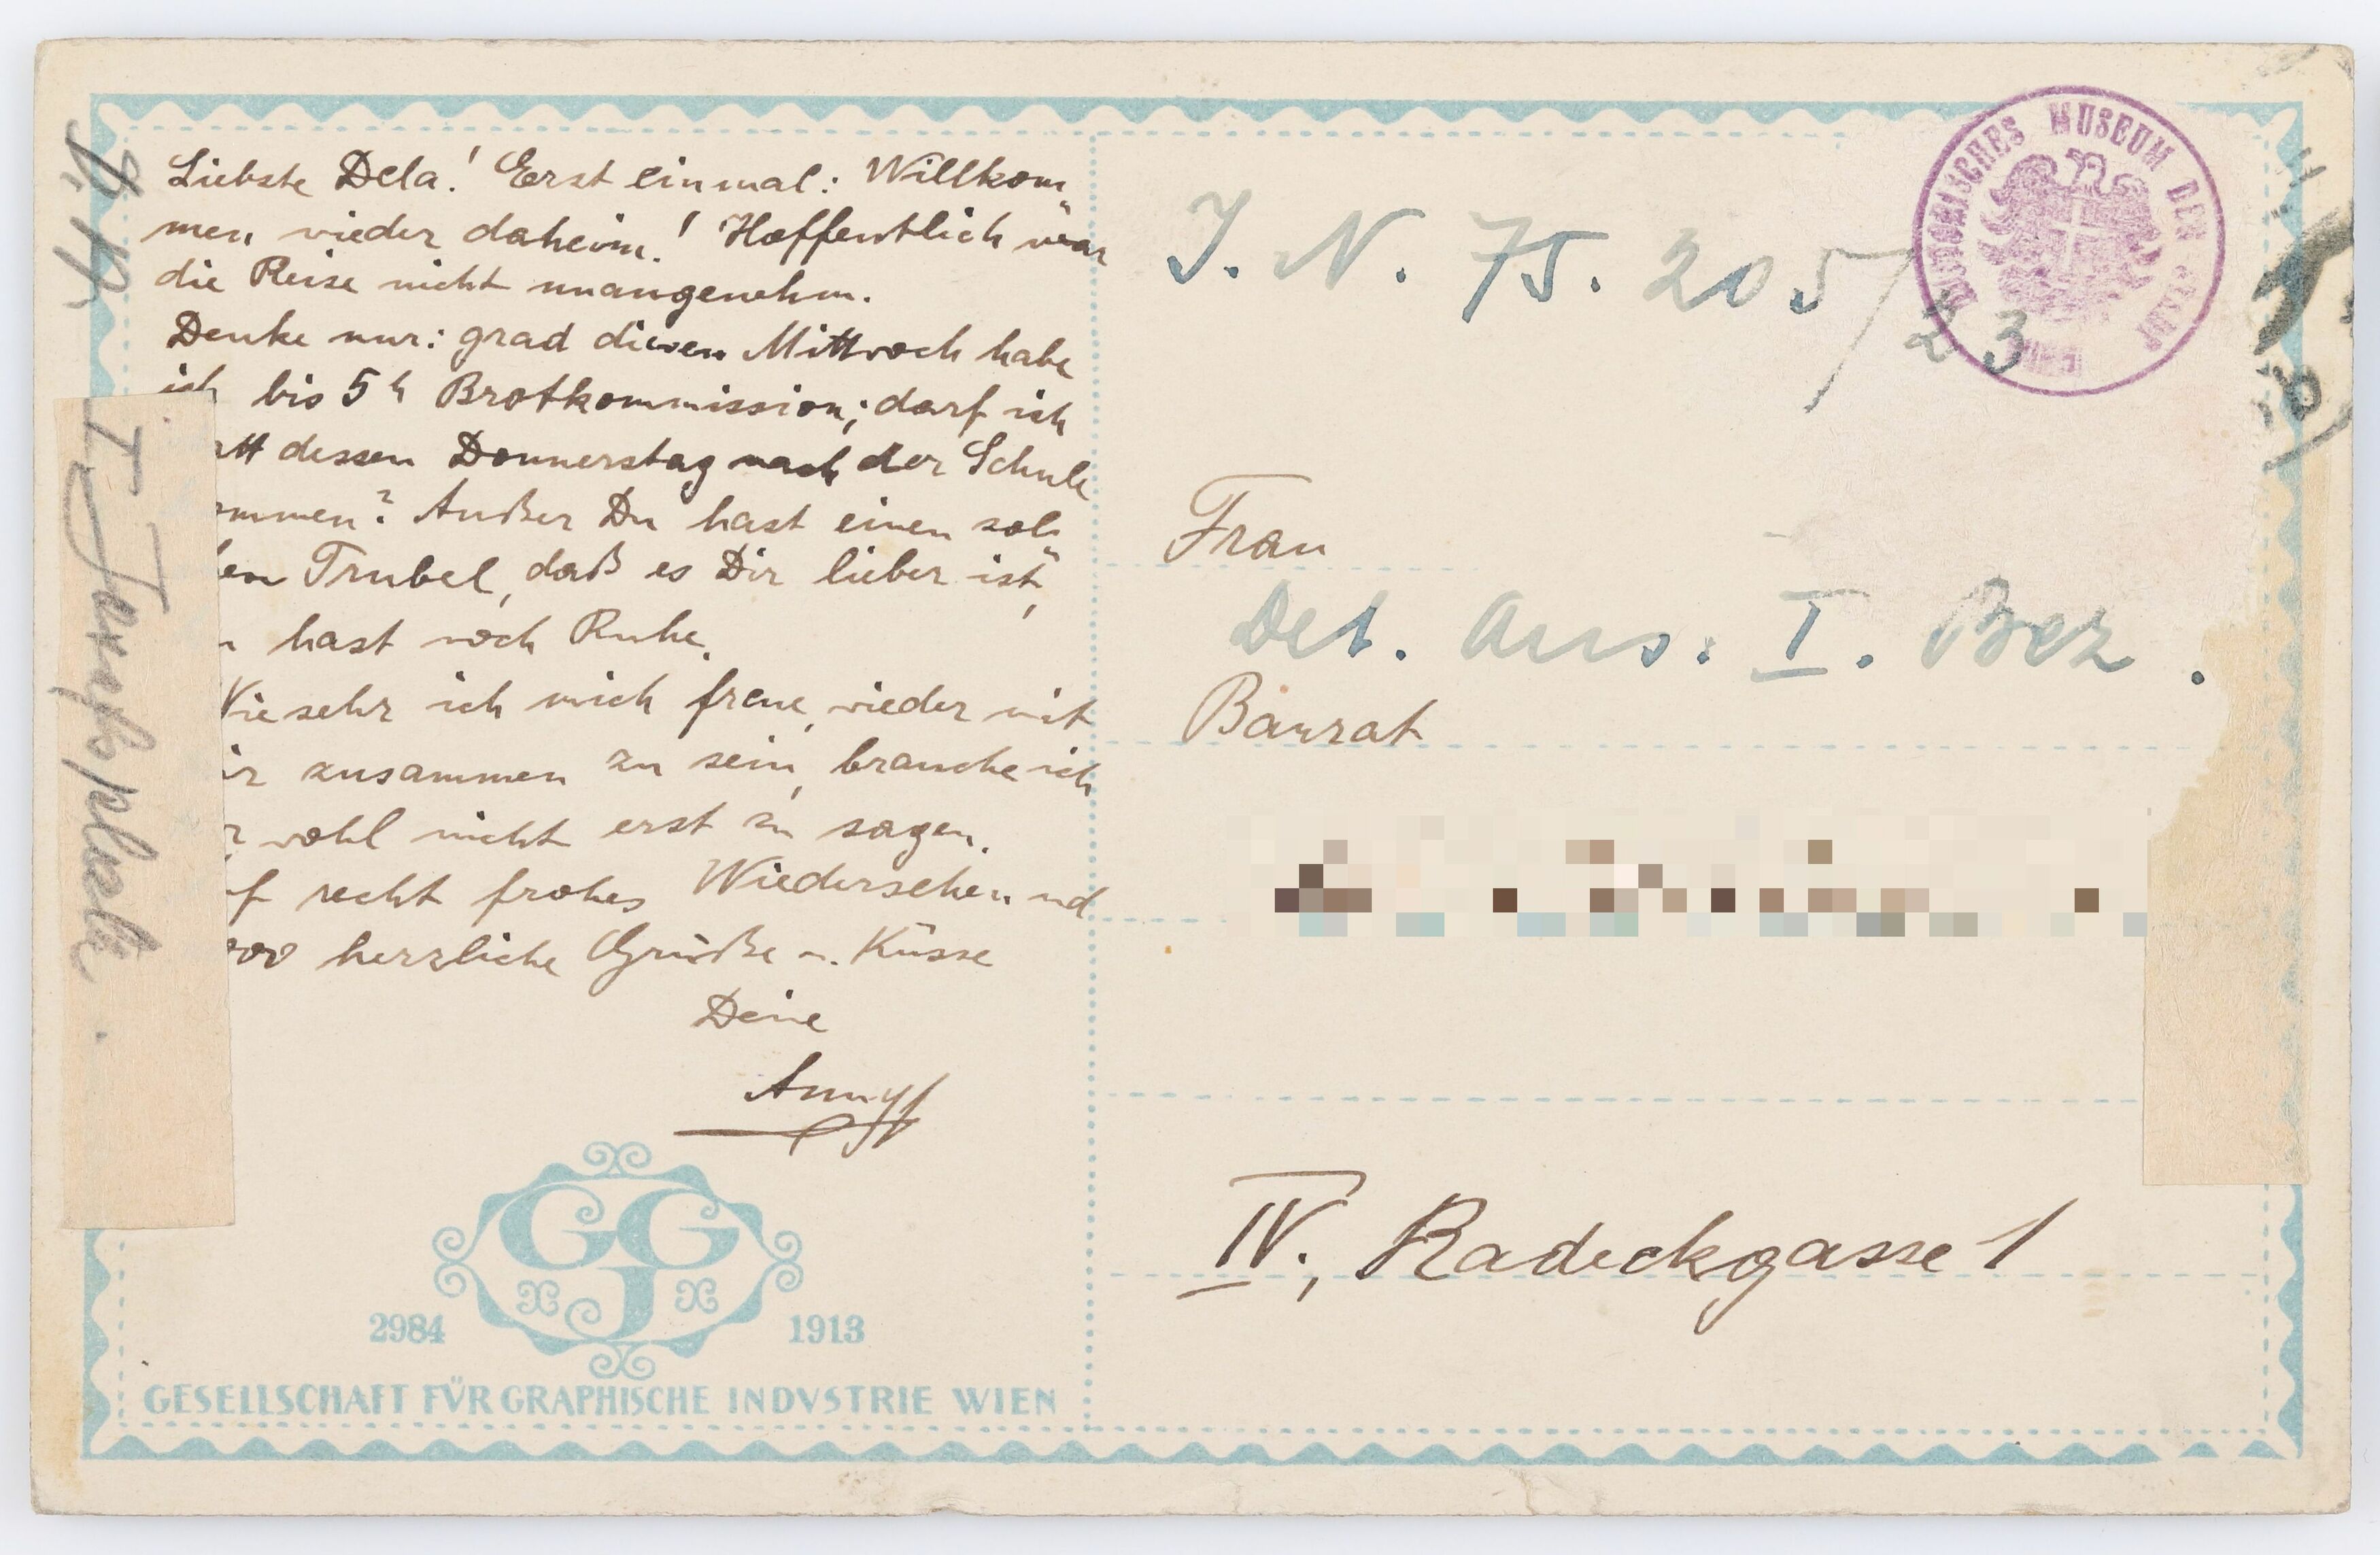 Liebste Dela! Erst einmal: Willkom„
men wieder daheim! Hoffentlich war
die Reise nicht unangenehm.
Denke nur: grad diesen Mittwoch habe
ich bis 5h Brotkommission; darf ich
att dessen Donnerstag nach der Schule
ommen? Außer Du hast einen sol„
en Trubel, daß es Dir lieber ist,
hast noch Ruhe.
Wie sehr ich mich freue, wieder mit
ir zusammen zu sein, brauche ich
r wohl nicht erst zu sagen.
f recht frohes Wiedersehen und
000 herzliche Grüße u. Küsse
Deine
Anny
2984 GGJ 1913
GESELLSCHAFT FÜR GRAPHISCHE INDVSTRIE WIEN
HISTORISCHES MUSEUM DER STADT WIEN
J. N. 75. 205/23
Frau
Det. Aus: I. Bez.
Baurat
IV., Radeckgasse 1